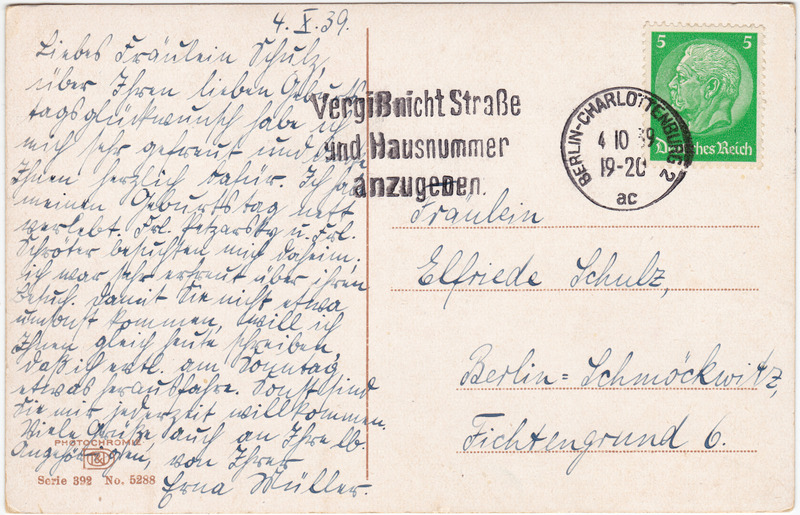 4. X. 39.
Liebes Fräulein Schulz,
über Ihren lieben Geburts-
tagsglückwunsch habe ich
mich sehr gefreut und
Ihnen herzlich dafür. Ich habe
meinen Geburtstag nett
verlebt. Frl. u. Frl.
Schröter besuchten mich daheim.
Ich war sehr erfreut über ihren
Besuch. Damit Sie nicht etwa
umsonst kommen, will ich
Ihnen gleich heute schreiben,
daß ich evtl. am Sonntag
etwas herausfahre. Sonst sind
Sie mir jederzeit willkommen.
Viele Grüße auch an Ihre lb.
Angehörigen, von Ihrer
Erna Müller.
PHOTOCHROMIE
Serie 392 No. 5288
Vergiß nicht Straße
und Hausnummer
anzugeben.
BERLIN-CHARLOTTENBURG 2
4 10 39
19-20
ac
5 5
Deutsches Reich
Fräulein
Elfriede Schulz,
Berlin=Schmöckwitz,
Fichtengrund 6.